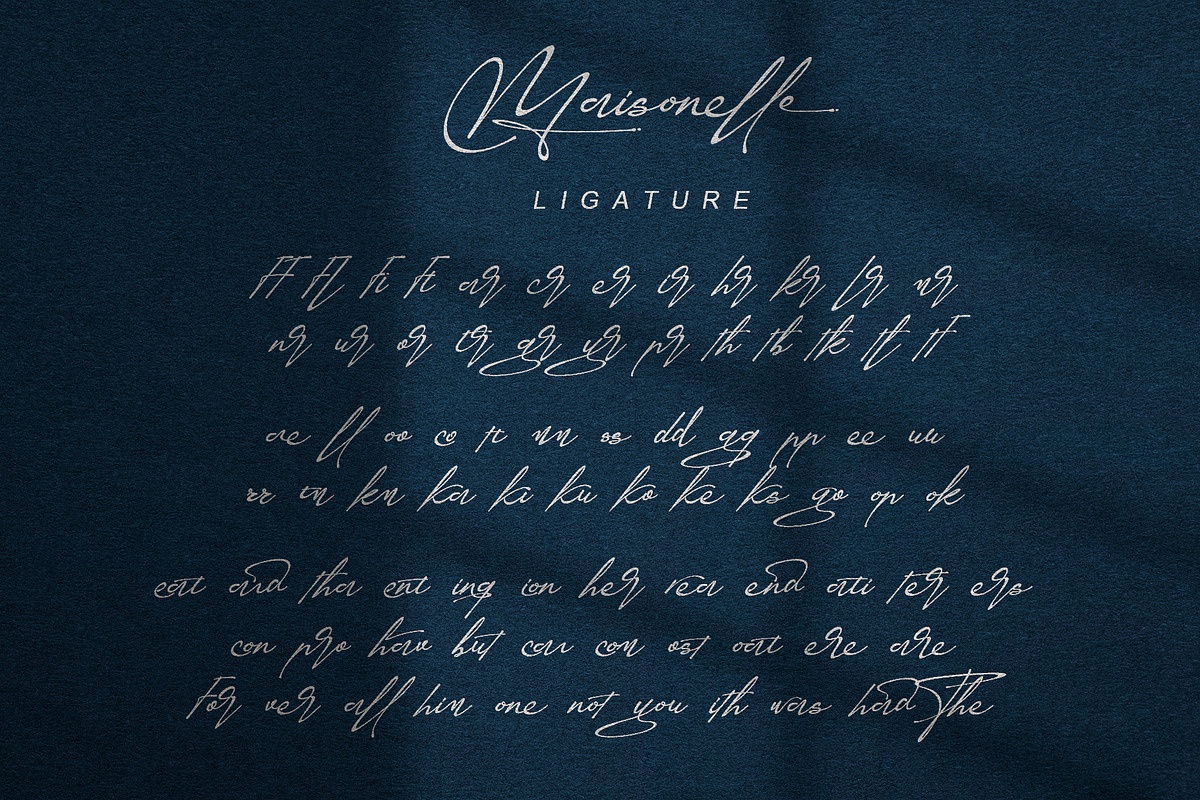 Maisonelle
LIGATURE
ff fl fi ft ar cr er ir hr kr lr nr
ur or tr gr yr pr th tb tk tl tf
ae ll oo co rt nn ss dd gg pp ee uu
rr tn kn ka ki ku ko ke ks go op ok
eat and tha ent ing ion her rea end ati ter ers
con pro hav but can con ost oat ere are
for ver all hin one not you ith was had The